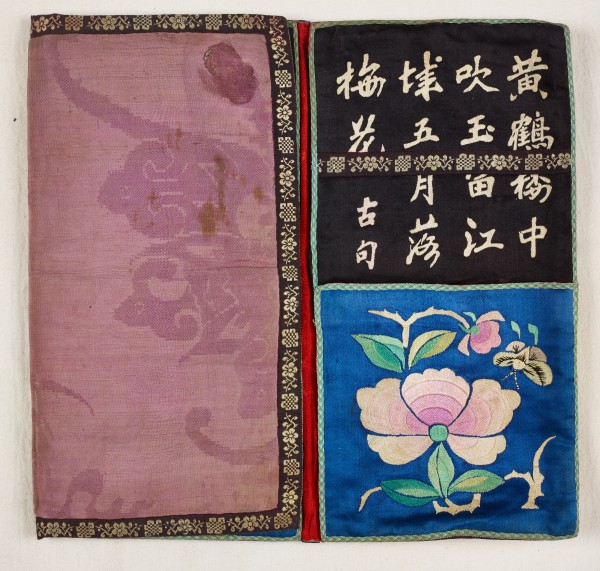 黄鶴樓中
吹玉笛江
城五月落
梅花
古句